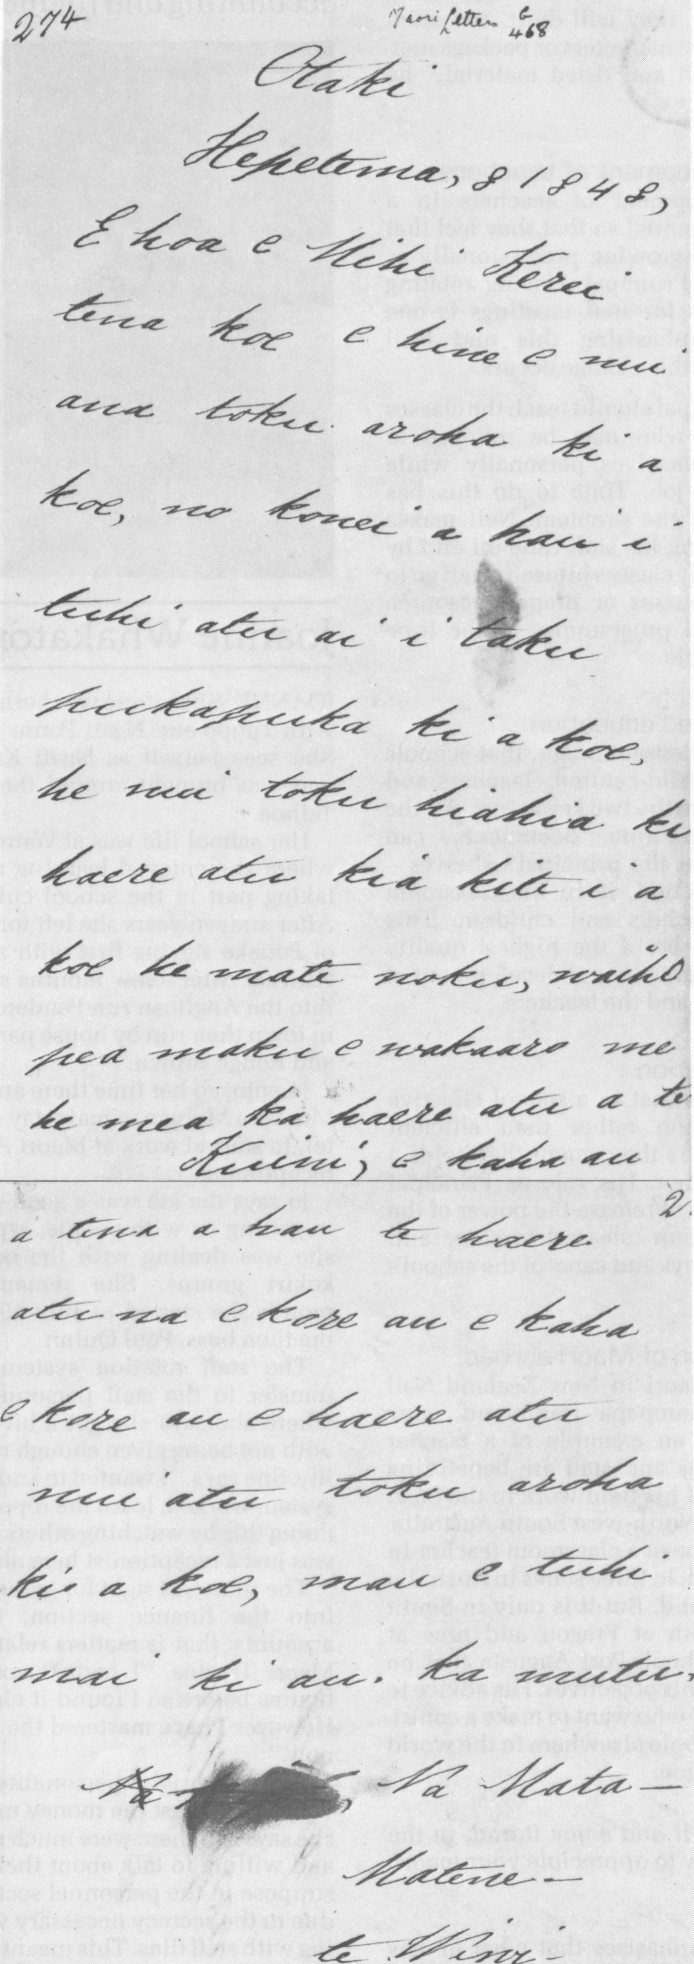 274
Maori Letters G
468
Otaki
Hepetema, 8 1848,
E hoa e Mihi Kerei
tena koe e hine e nui
ana toku aroha ki a
koe, no konei a hau i
tuhi atu ai i taku
pukapuka ki a koe,
he nui toku hiahia ki
haere atu kia kite i a
koe he mate noku, waiho
pea maku e wakaaro me
he mea ka haere atu a te
Kuini, e kaha au
2.
a tena a hau te haere
atu na e kore au e kaha
e kore au e haere atu
nui atu toku aroha
ki a koe, mau e tuhi
mai ki au. Ka mutu.
Na Na Mata—
Matene—
te Wiwi—